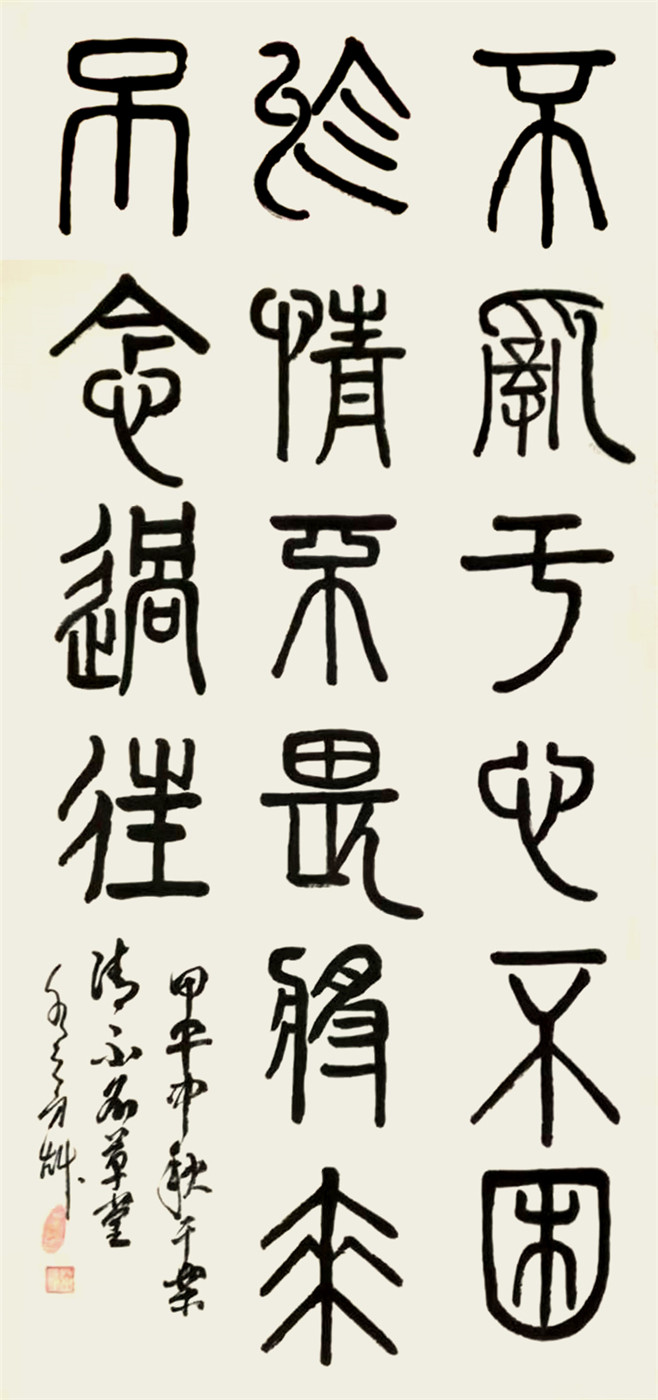 不亂于心不困
於情不畏將來
不念過往
甲午中秋于
清草堂